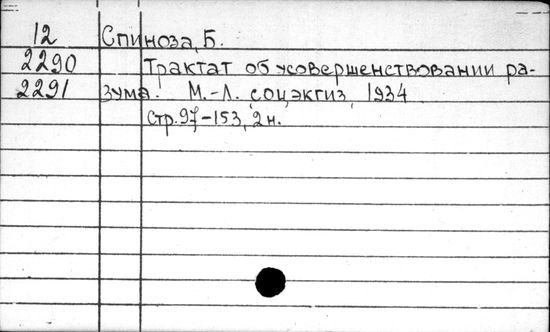 12 Спиноза, Б.
2290 Трактат об усовершенствовании ра-
2291 зума. М.-Л. соцэкгиз, 1934
стр. 97-153, 2н.